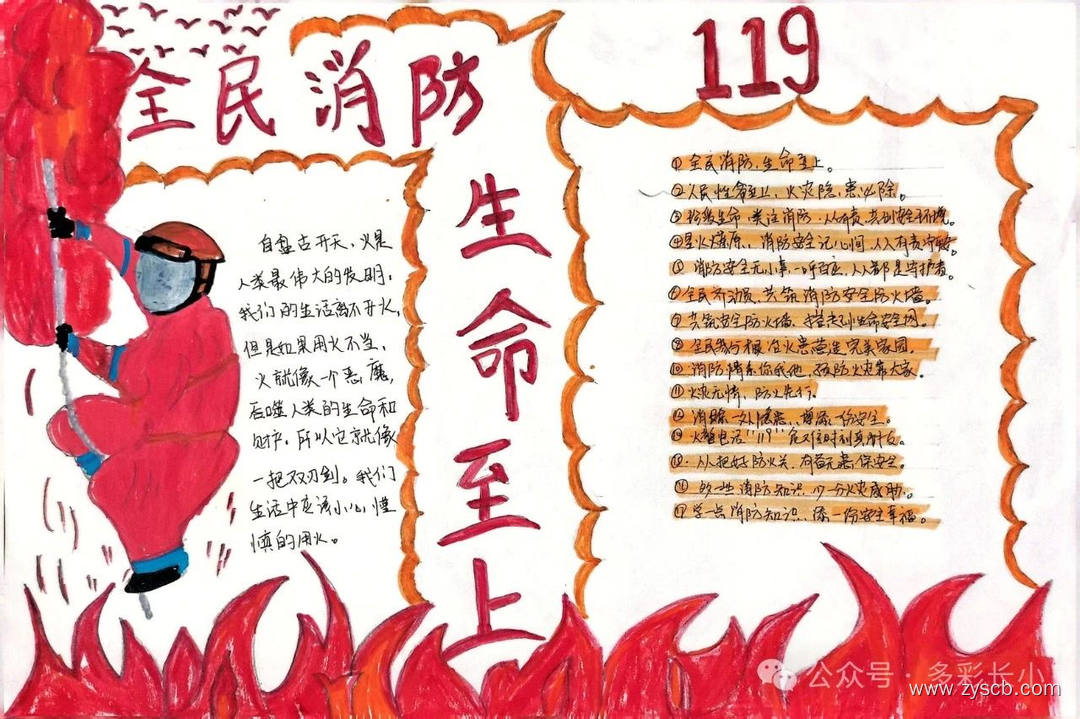 全民消防
119
生命至上
自盘古开天，火是
人类最伟大的发明，
我们的生活离不开火，
但是如果用火不当，
火就像一个恶魔，
吞噬人类的生命和
财产，所以它就像
一把双刃剑。我们
生活中应该小心，谨
慎的用火。
①全民消防，生命至上。
②人民性命至上，火灾隐患必除。
珍爱生命 关注消防，人人有责 共创安全环境。
星火燎原，消防安全记心间，人人有责守护
消防安全无小事，一呼百应，人人都是守护者。
全民齐动员，共筑消防安全防火墙。
共筑安全防火墙，
全民参与 根治火患 营造完美家园。
消防情系你我他，预防火灾靠大家。
火灾无情，防火先行。
消除一处隐患，增添一份安全。
火警电话"119"，危难时刻真朋友。
人人把好防火关，
多一些消防知识，少一分火灾威胁。
学一点消防知识，添一份安全幸福。
公众号·多彩长小
www.zyscb.com